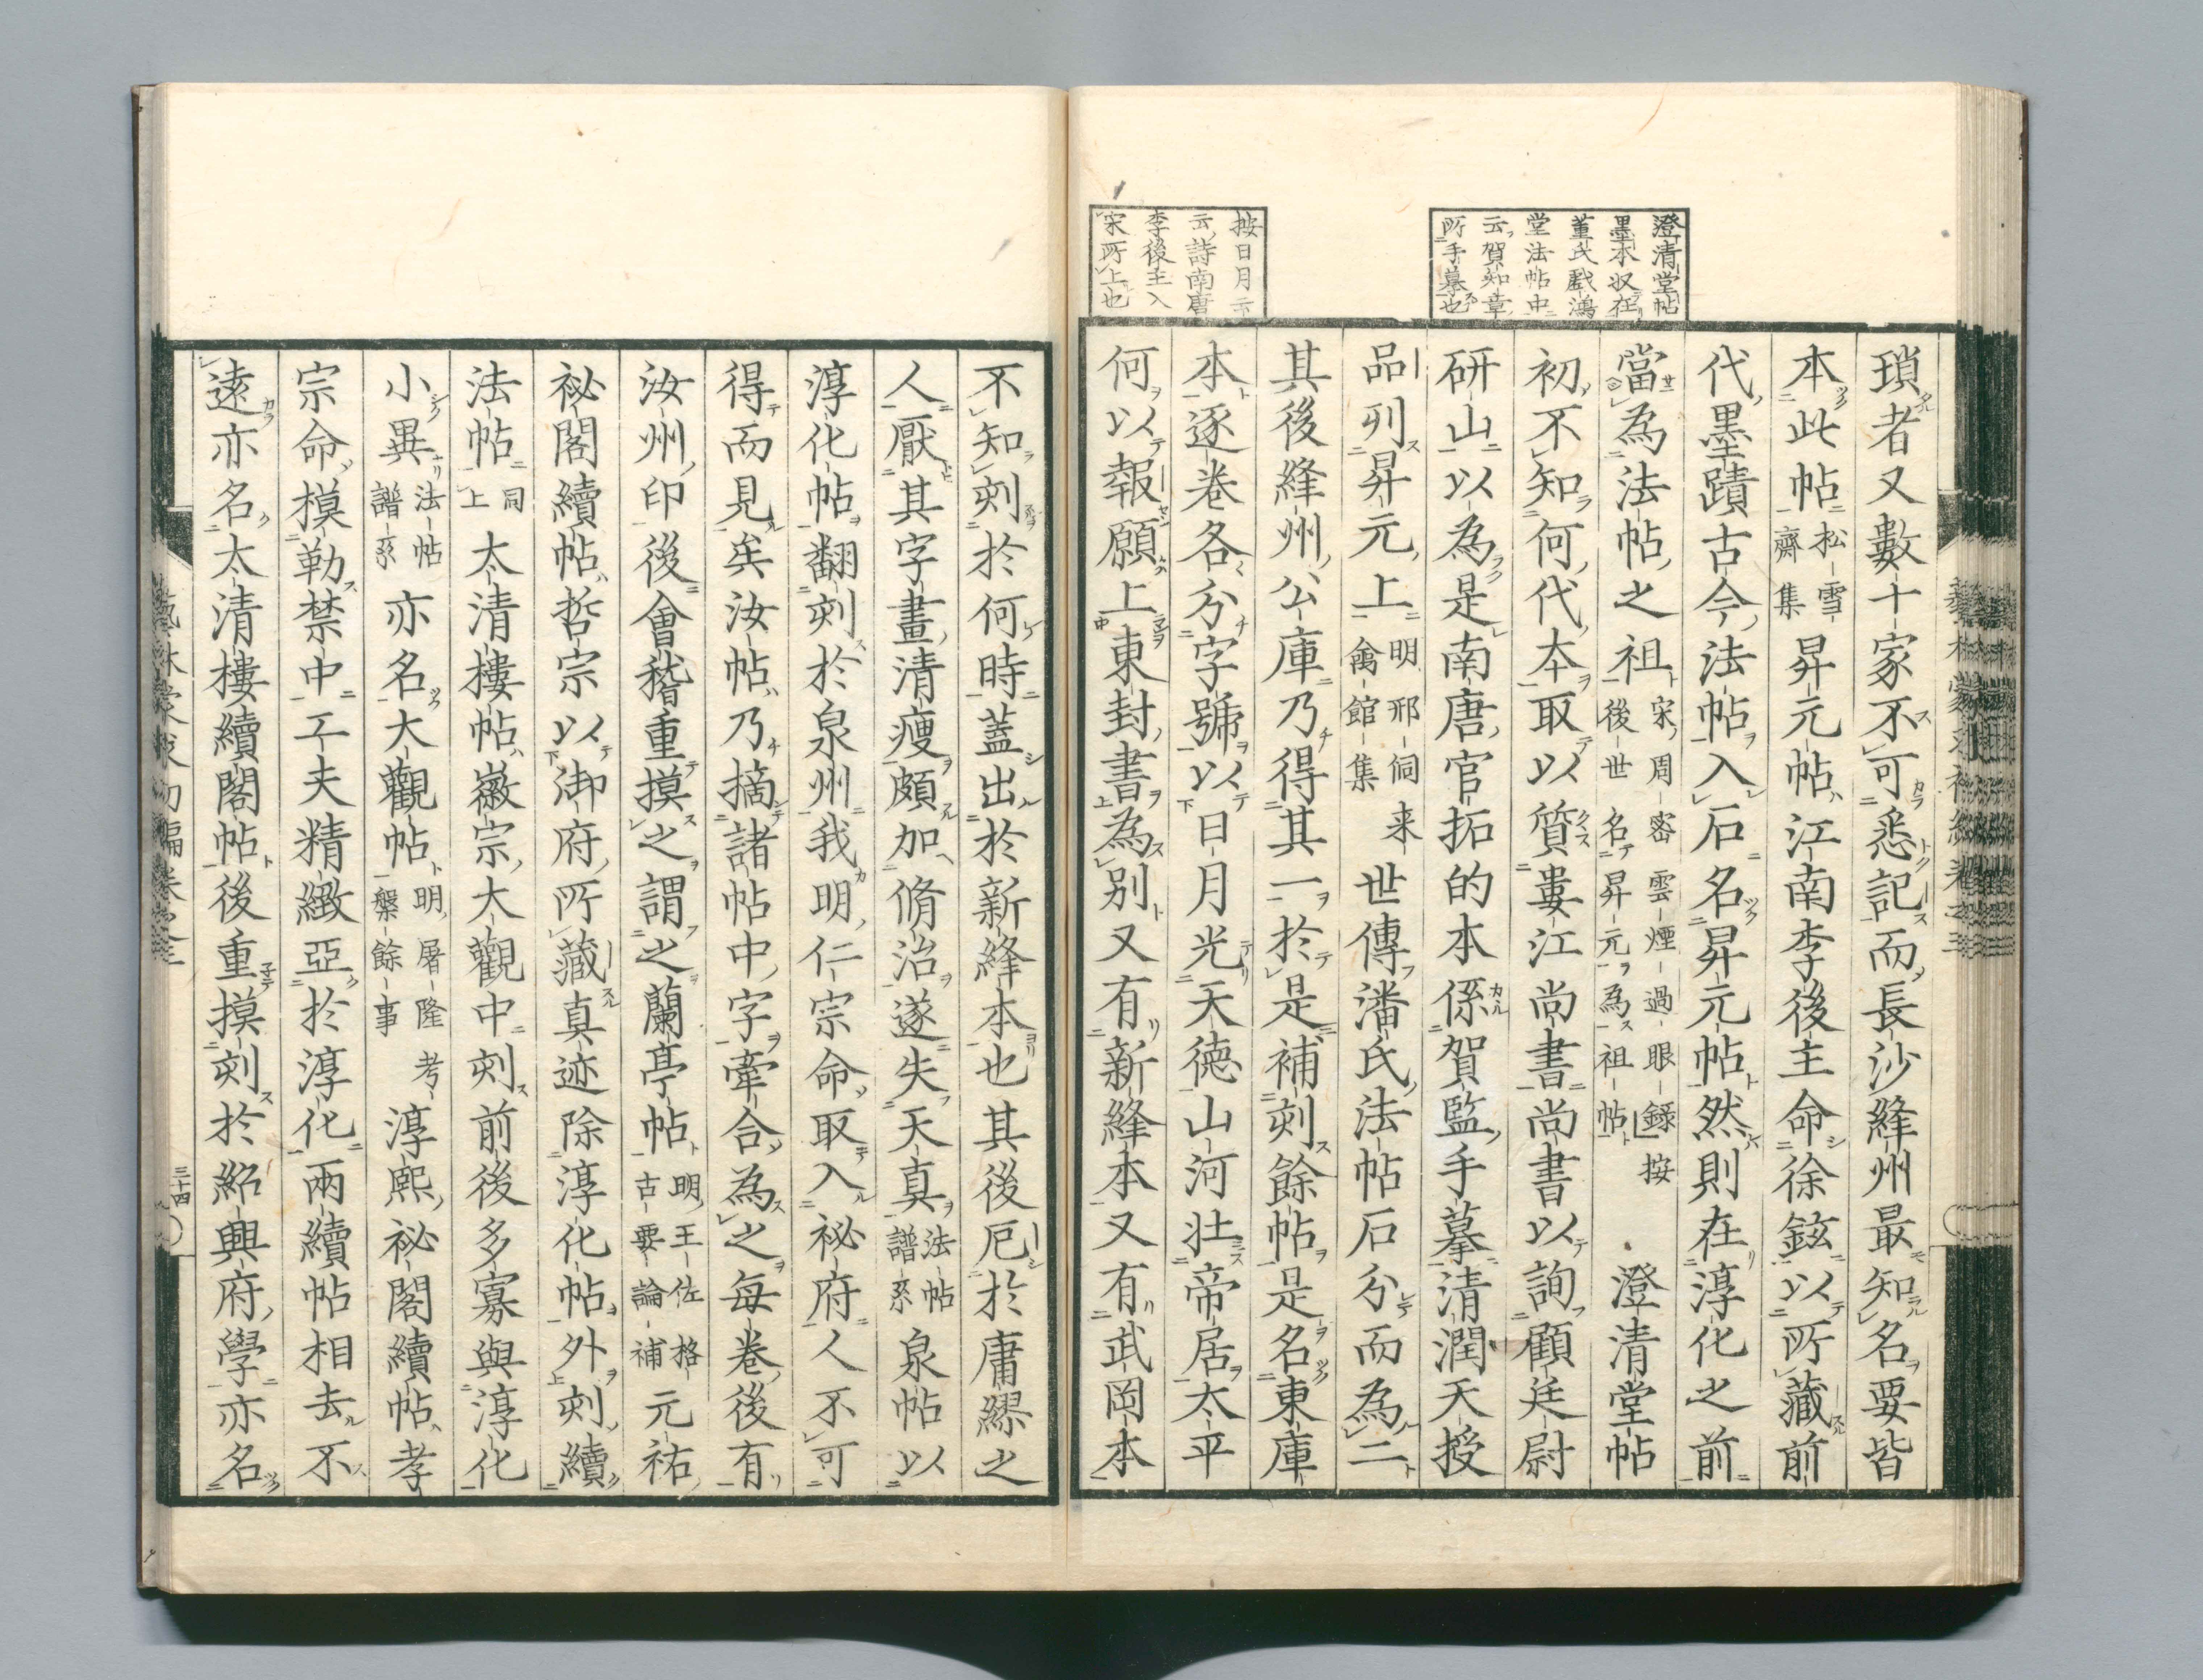 澄清堂帖
墨本収在
董氏戲鴻
堂法帖中
云賀知章
所手摹也
按日月云
云詩南唐
李後主入
宋所上也
瑣者又數十家不可悉記而長沙絳州最知名要皆
本此帖松雪齋集昇元帖江南李後主命徐鉉以所藏前
代墨蹟古今法帖入石名昇元帖然則在淳化之前
當為法帖之祖宋周密雲煙過眼録後世名昇元為祖帖按澄清堂帖
初不知何代本取以質婁江尚書尚書以詢顧廷尉
研山以為是南唐官拓的本係賀監手摹清潤天授
品列昇元上明邢侗来禽館集世傳潘氏法帖石分而為二
其後絳州公庫乃得其一於是補刻餘帖是名東庫
本逐卷各分字號以日月光天德山河壯帝居太平
何以報願上東封書為別又有新絳本又有武岡本
不知刻於何時蓋出於新絳本也其後厄於庸繆之
人厭其字畫清瘦頗加脩治遂失天真法帖譜系泉帖以
淳化帖翻刻於泉州我明仁宗命取入祕府人不可
得而見矣汝帖乃摘諸帖中字牽合為之每卷後有
汝州印後會稽重摸之謂之蘭亭帖明王佐格古要論補元祐
祕閣續帖哲宗以御府所藏真迹除淳化帖外刻續
法帖同上太清樓帖徽宗大觀中刻前後多寡與淳化
小異法帖譜系亦名大觀帖明屠隆考槃餘事淳熙祕閣續帖孝
宗命模勒禁中工夫精緻亞於淳化兩續帖相去不
遠亦名太清樓續閣帖後重摸刻於紹興府學亦名
三十四